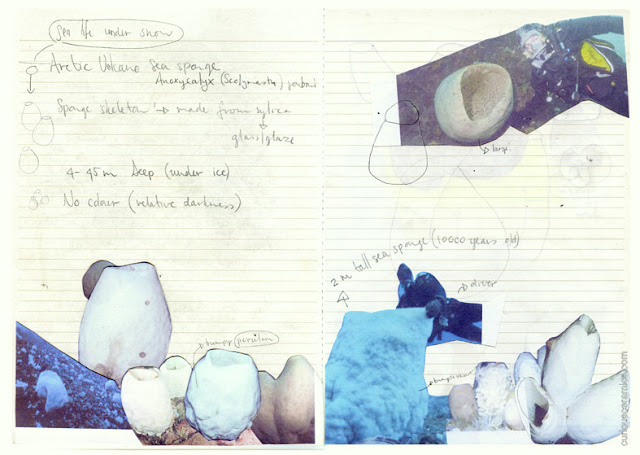 Sea life under snow
Arctic Volcano Sea sponge
Anoxycalyx (Scolymastra) joubini
Sponge skeleton → made from sylica
glass/glaze
4-45m Deep (under ice)
No colour (relative darkness)
bumpy
large
2 m tall sea sponge (10000 years old)
diver